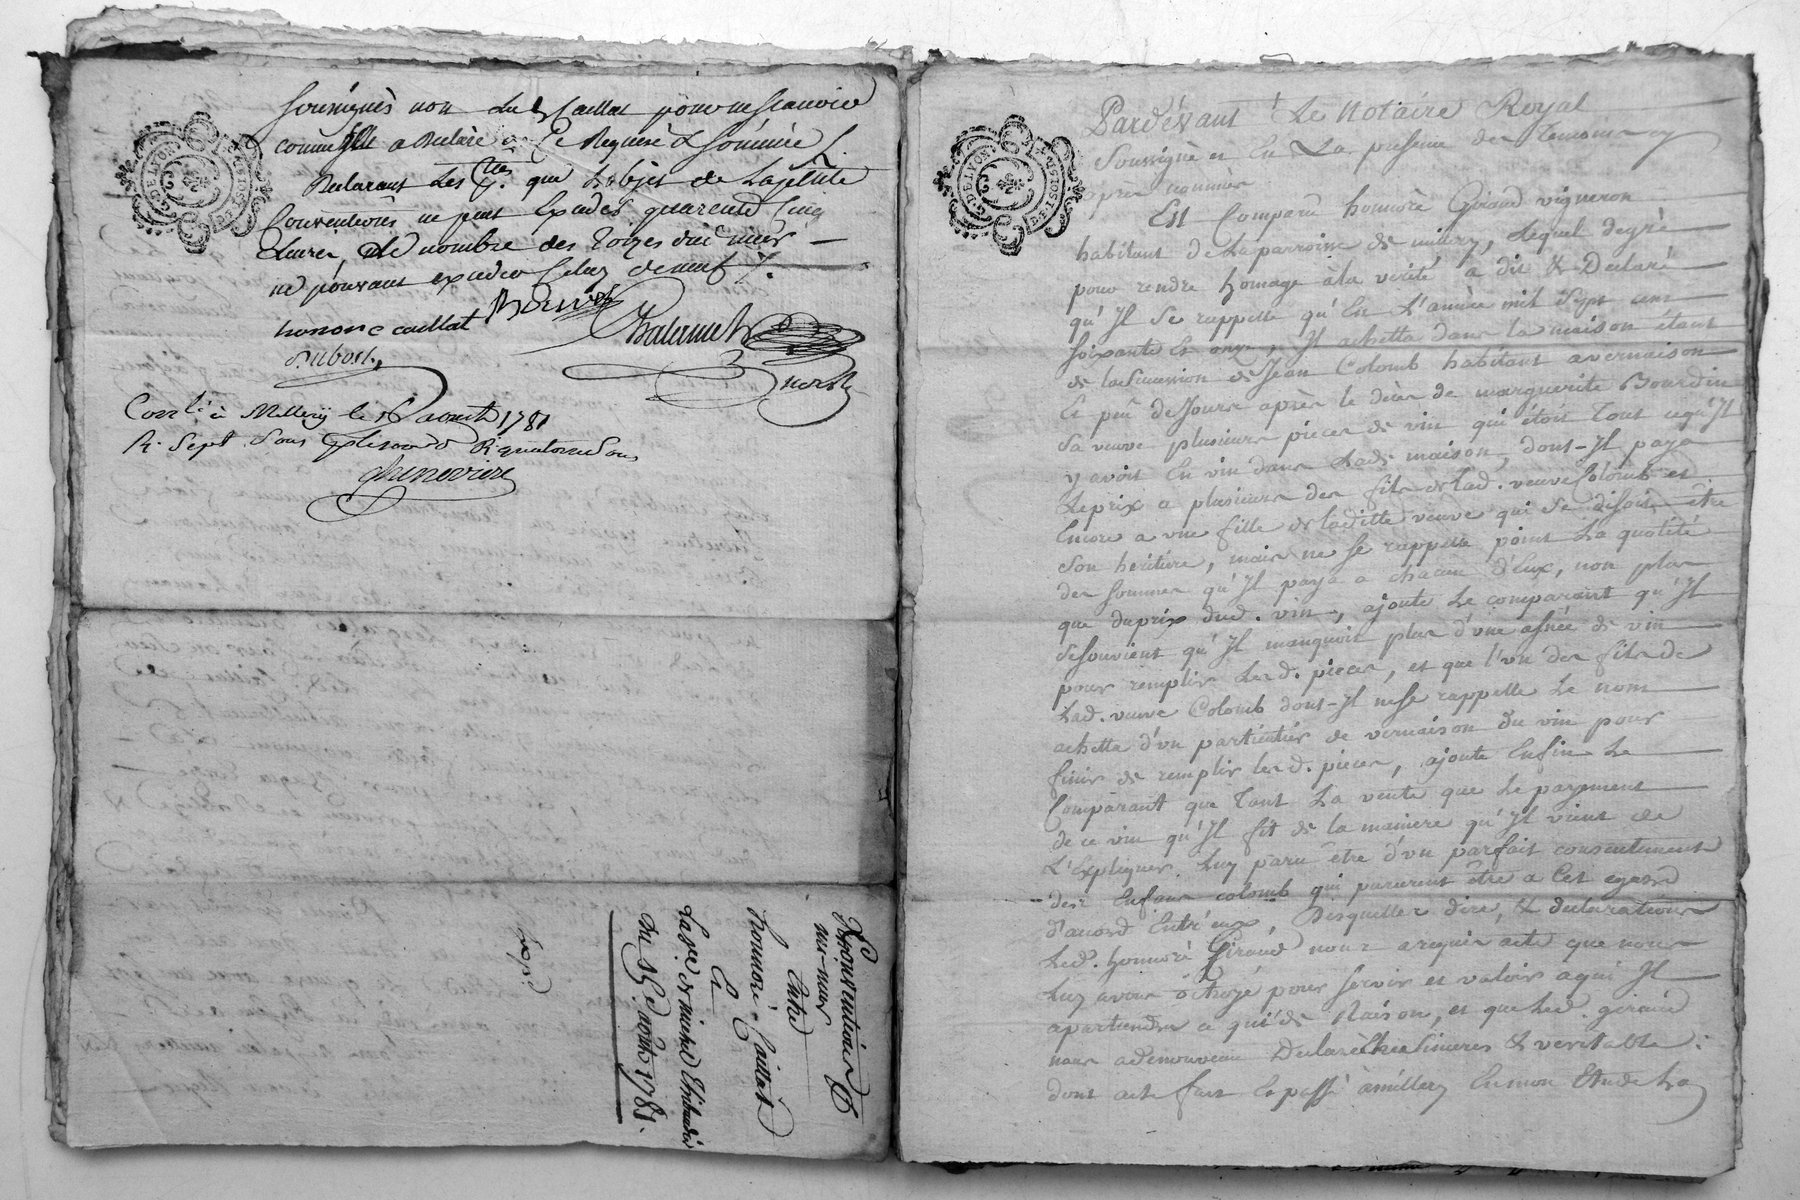 soussignés non lad. Caillat pour ne scavoir
comme Elle a declaré de Ce Requise & sommée /.
Declarant Les Pties. que L'objet de Lad.
Conventions ne peut Exceder quarente Cinq
Livres, & le nombre des Toizes dud. mur
ne pouvant exceder Celuy de neuf /.
honoré caillat
dubost
Conlé. à Millery le août 1781
R. Sept Sous
chenevière
GDE LYON
1 SOL 3 D
Conventions
sur mur
Entre
honnoré Caillat
Et
La ve. de michel Thibaudier
du 5e. août 1781.
Expié
GDE LYON
1 SOL 3 D
Pardévant Le Notaire Royal
Soussigné et En La presence des Temoins
apres nommés
Est Comparu honnoré Giraud vigneron
habitant de La parroisse de millery, Lequel de gré
pour rendre homage à la verité a dit & Declaré
qu'Il Se rappelle qu'En L'année mil Sept cent
Soixante Et onze, Il achetta dans la maison étant
de la Succession de Jean Colomb habitant a vernaison
Et peu de Jours après le décès de marguerite Bourdin
Sa veuve plusieurs pieces de vin qui étoit Tout ce qu'Il
y avoit En vin dans Lade. maison, dont-Il paya
Le prix a plusieurs des fils de Lad. veuve Colomb et
Encore a une fille de ladite veuve qui Se disoit être
Son héritière, mais ne Se rappelle point La quotité
des Sommes qu'Il paya a chacun d'Eux, non plus
que du prix dud. vin, ajoute Le comparant qu'Il
Se Souvient qu'Il manquoit plus d'une asnée de vin
pour remplir Les d. pieces, et que l'un des fils de
Lad. veuve Colomb dont-Il ne Se rappelle Le nom
achetta d'un particulier de vernaison du vin pour
finir de remplir les d. pieces, ajoute Enfin Le
Comparant que Tant La vente que Le payement
de ce vin qu'Il fit de la maniere qu'Il vient de
L'Expliquer Luy paru être d'un parfait consentement
des Enfans colomb qui parurent être a Cet egard
d'accord Entr'eux, Desquelles dire, & declaration
Led. honnoré Giraud nous a requis acte que nous
Luy avons octroyé pour Servir et valoir a qui Il
apartiendra ce qui de Raison, et que Led. giraud
nous a de nouveau Declaré Etre Sinceres & veritable :
dont acte fait Et passé à millery En mon Etude La